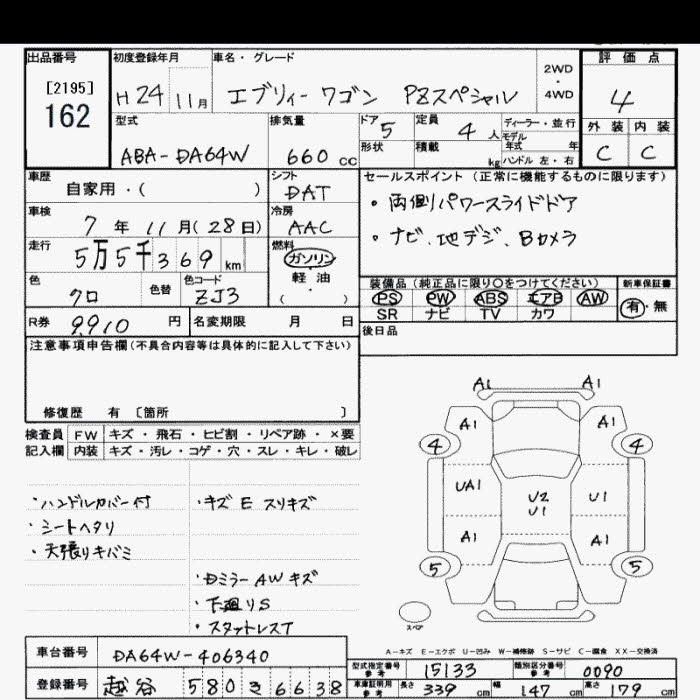 出品番号
[2195]
162
初度登録年月
H24 11月
車名・グレード
エブリィーワゴン PZスペシャル
2WD
・
4WD
評価点
4
型式
ABA-DA64W
排気量
660 cc
ドア 5
形状
定員 4人
積載 kg
ディーラー・並行
モデル年式 年
ハンドル 左・右
外装 内装
C C
車歴
自家用・( )
シフト
DAT
車検
7年 11月(28日)
冷房
AAC
走行
5万5千369km
燃料
ガソリン
軽油
( )
色
クロ
色替
色コード
ZJ3
R券 9910円
名変期限 月 日
セールスポイント(正常に機能するものに限ります)
・両側パワースライドドア
・ナビ、地デジ、Bカメラ
装備品(純正品に限り○をつけてください)
PS PW ABS エアB AW
SR ナビ TV カワ
新車保証書
有・無
後日品
注意事項申告欄(不具合内容等は具体的に記入して下さい)
修復歴 有 [箇所 ]
検査員 FW キズ・飛石・ヒビ割・リペア跡・×要
記入欄 内装 キズ・汚レ・コゲ・穴・スレ・キレ・破レ
・ハンドルカバー付
・シートヘタリ
・天張りキバミ
・キズ E スリキズ
・Dミラー AW キズ
・下廻りS
・スタットレスT
A1 A1
A1 A1
4 4
UA1 U2 U1
U1
A1 A1
5 5
スペア
A-キズ E-エクボ U-凹み W-補修跡 S-サビ C-腐食 XX-交換済
車台番号
DA64W-406340
登録番号
越谷 580 き 6638
型式指定番号
参考
15133
類別区分番号
参考
0090
車庫証明用
参考
長さ 339cm 幅 147cm 高さ 179cm